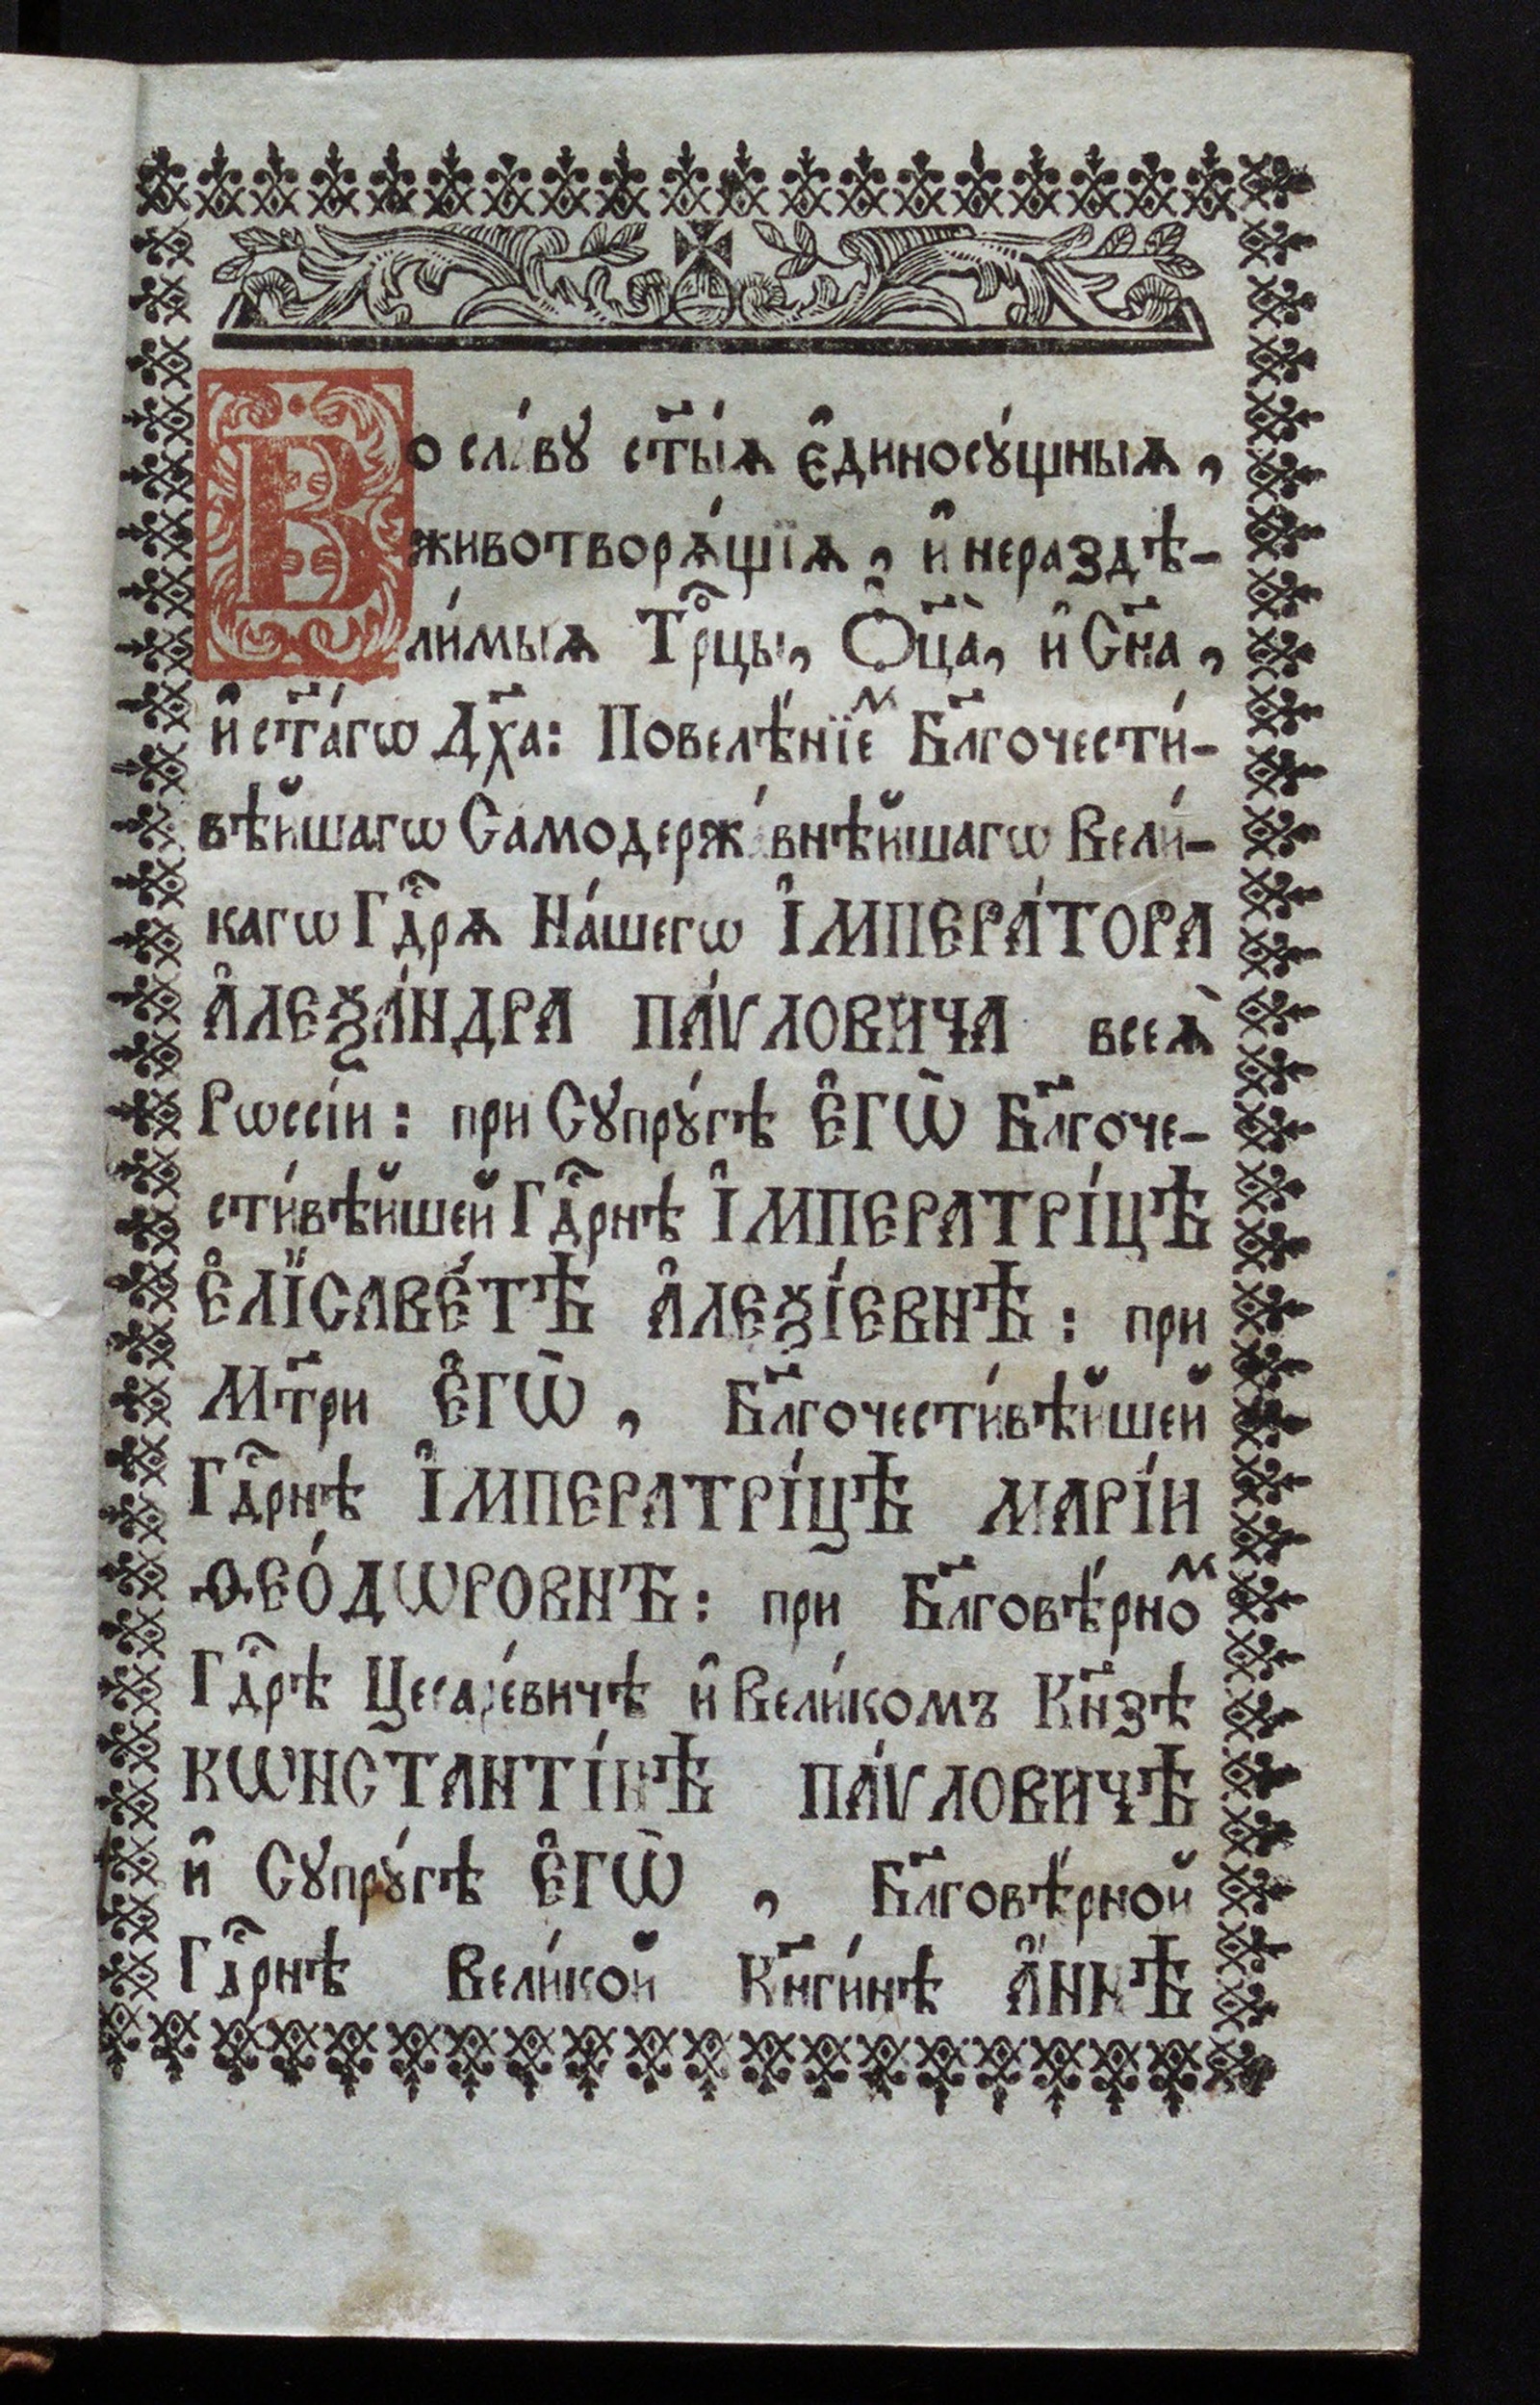 Во сла́вꙋ ст҃ы́ѧ є҆диносꙋ́щныѧ,
животворѧ́щїѧ, и҆ нераздѣ-
ли́мыѧ Трⷪ҇цы, Ѻ҆ц҃а̀, и҆ Сн҃а,
и҆ ст҃а́гѡ Дх҃а: Повелѣ́нїеⷨ Бл҃гочести́-
вѣйшагѡ Самодержа́внѣйшагѡ Вели́-
кагѡ Гдⷭ҇рѧ На́шегѡ І҆МПЕРА́ТОРА
А҆ЛЕѮА́НДРА ПА́ѴЛОВИЧА всеѧ̀
Рѡссі́и: при Сꙋпрꙋ́гѣ Є҆ГѠ̀ Бл҃гоче-
сти́вѣйшей Гдⷭ҇рнѣ І҆МПЕРАТРІ́ЦѢ
Є҆ЛЇСАВЕ́ТѢ А҆ЛЕѮІ́ЕВНѢ: при
Мт҃ри Є҆ГѠ̀, Бл҃гочести́вѣйшей
Гдⷭ҇рнѣ І҆МПЕРАТРІ́ЦѢ МАРІ́И
ѲЕО́ДѠРОВНѢ: при Бл҃говѣ́рноⷨ
Гдⷭ҇рѣ Цесаре́вичѣ и҆ Вели́комъ Кн҃зѣ
КѠНСТАНТІ́НѢ ПА́ѴЛОВИЧѢ
и҆ Сꙋпрꙋ́гѣ Є҆ГѠ̀, Бл҃говѣ́рной
Гдⷭ҇рнѣ Вели́кой Кн҃ги́нѣ А҆́ННѢ